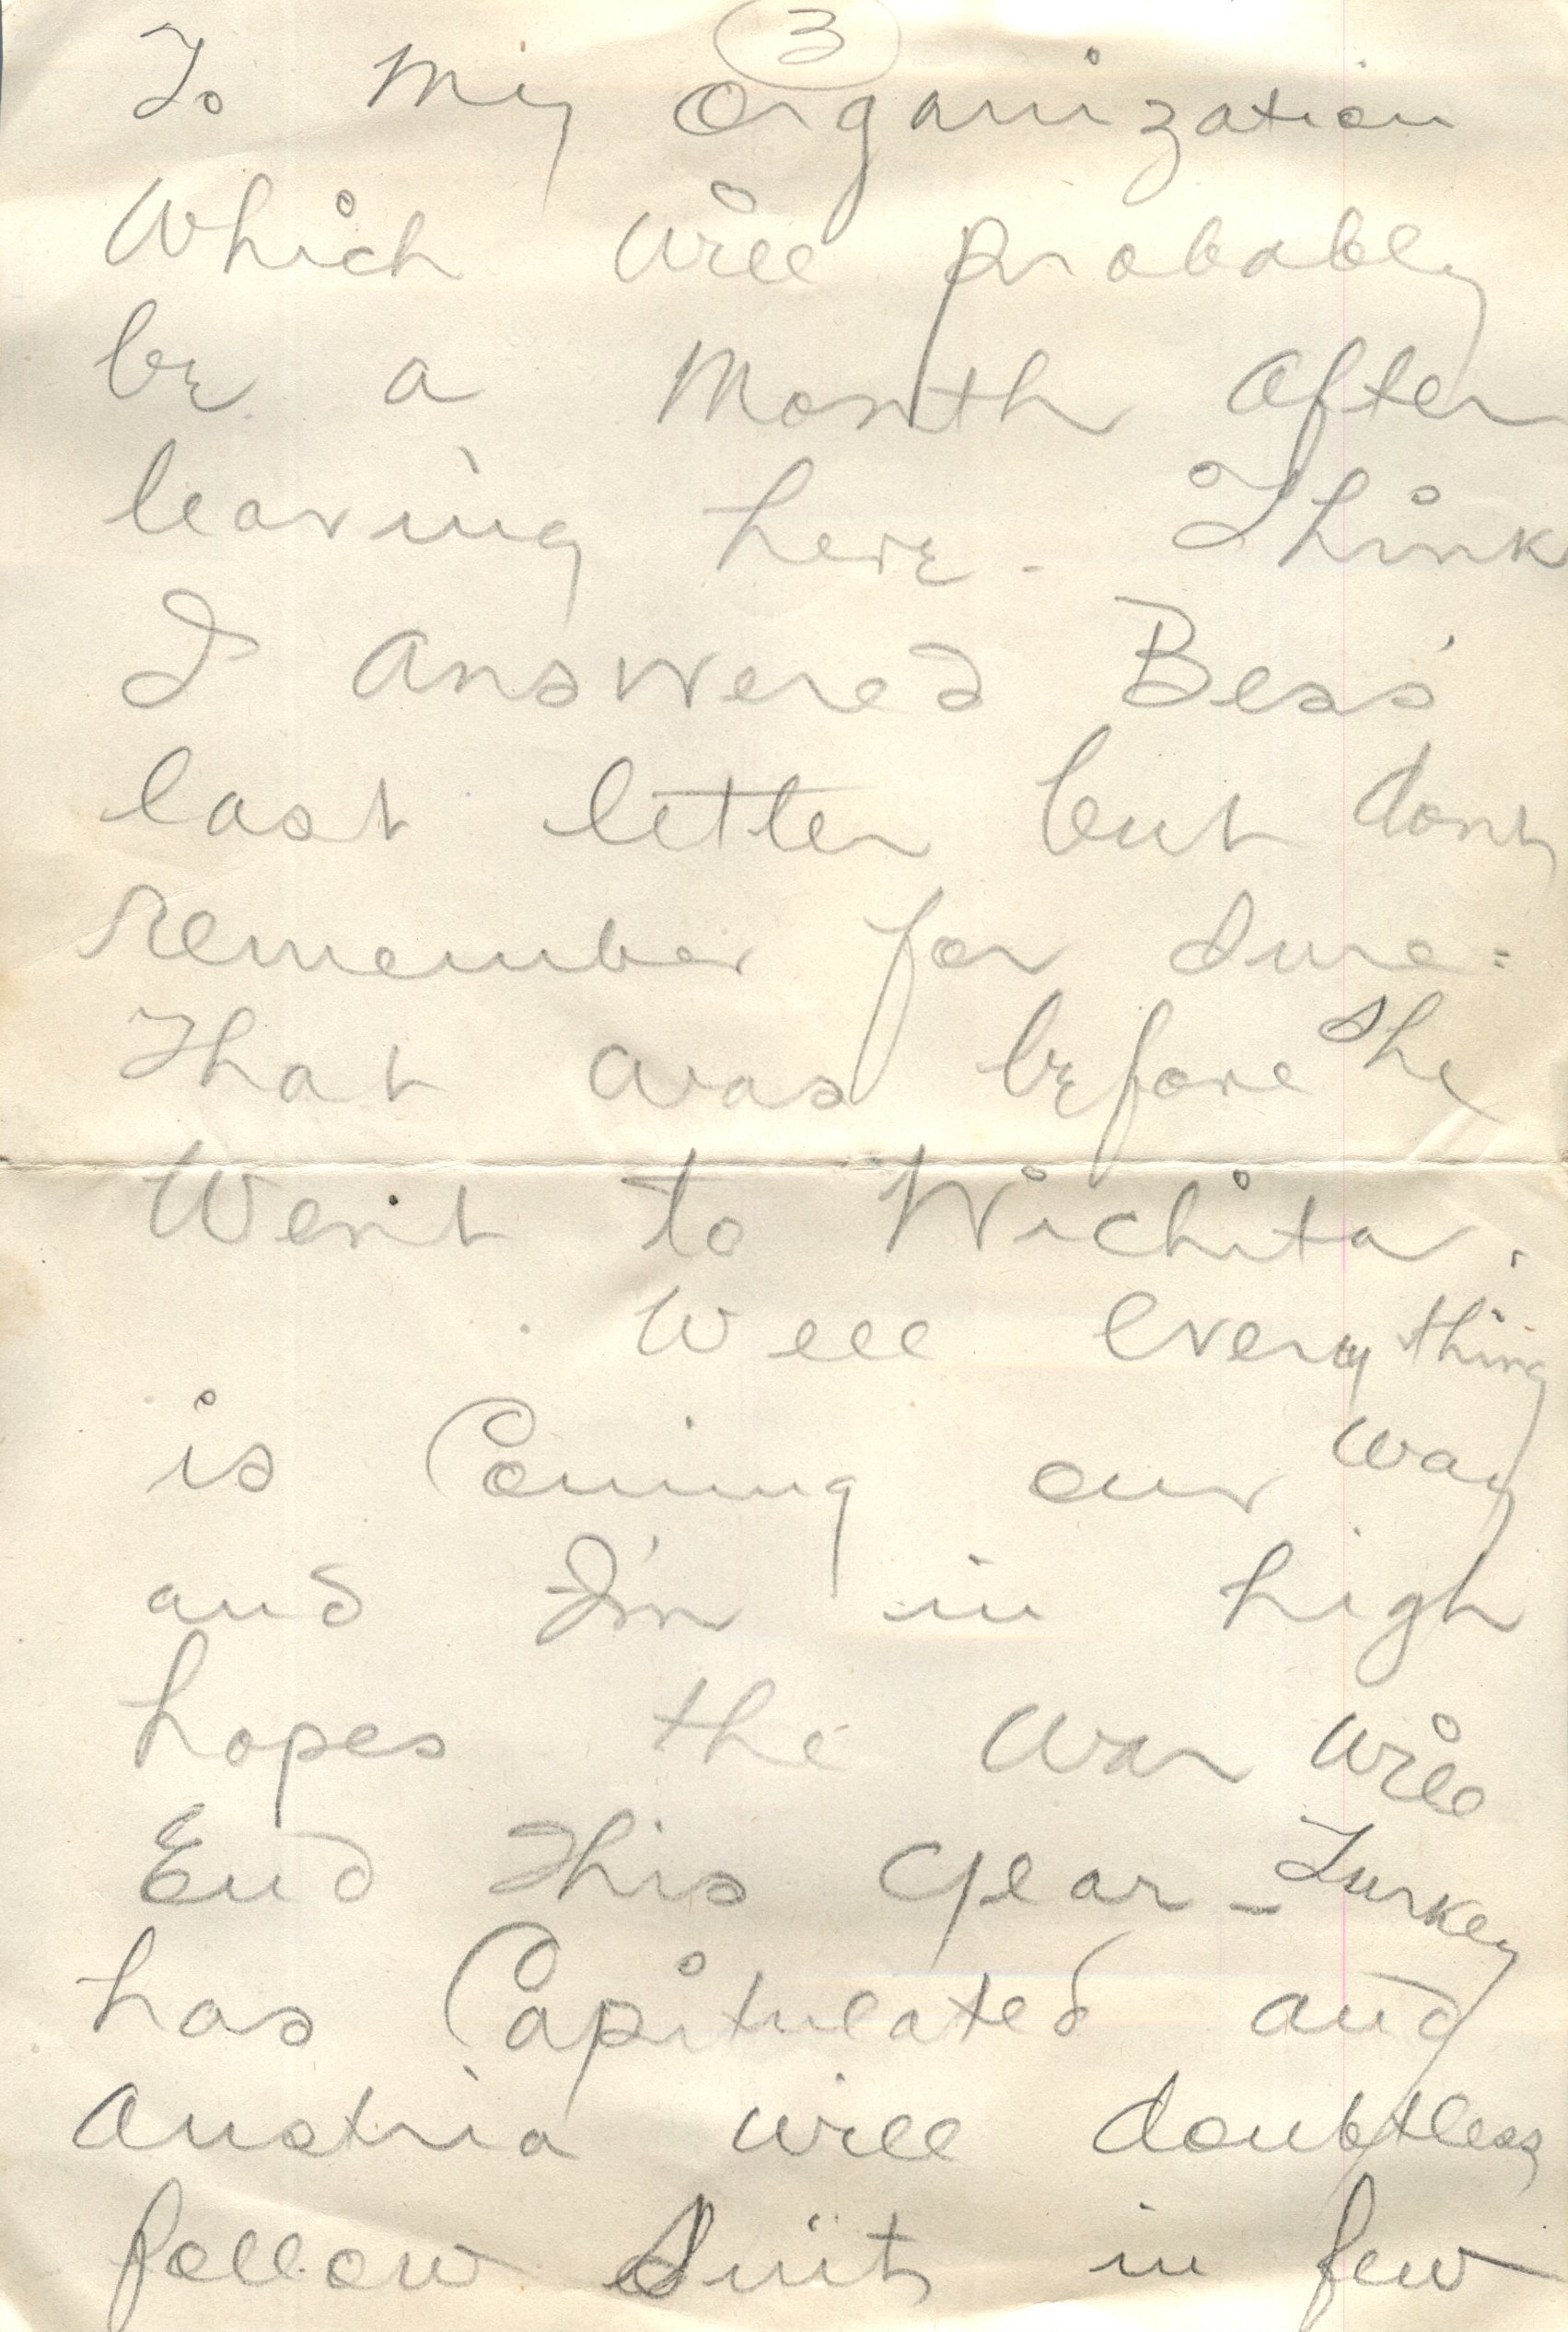 3
To My Organization
Which will probably
be a Month After
leaving here - Think
I answered Bess'
last letter but dont
remember for sure =
That was before she
Went to Wichita.
Well everything
is Coming our way
and I'm in high
hopes the war will
End This year - Turkey
has Capitulated and
Austria will doubtless
follow Suit in few